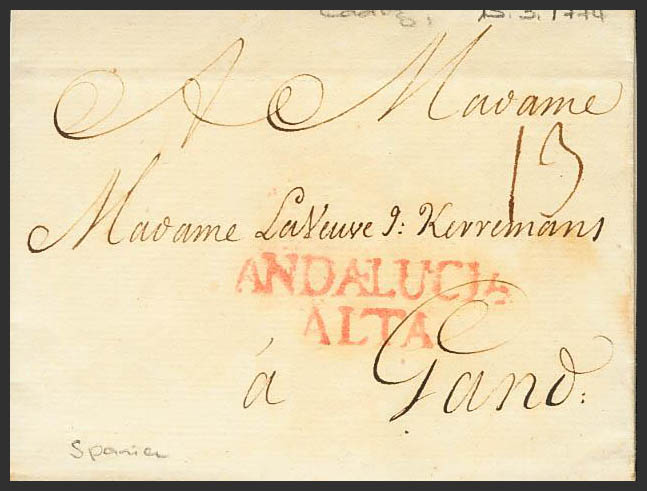 Cadiz, 15.3.1774
A Madame
13
Madame La Veuve J: Kerremans
ANDALUCIA
ALTA
á Gand:
Spanien